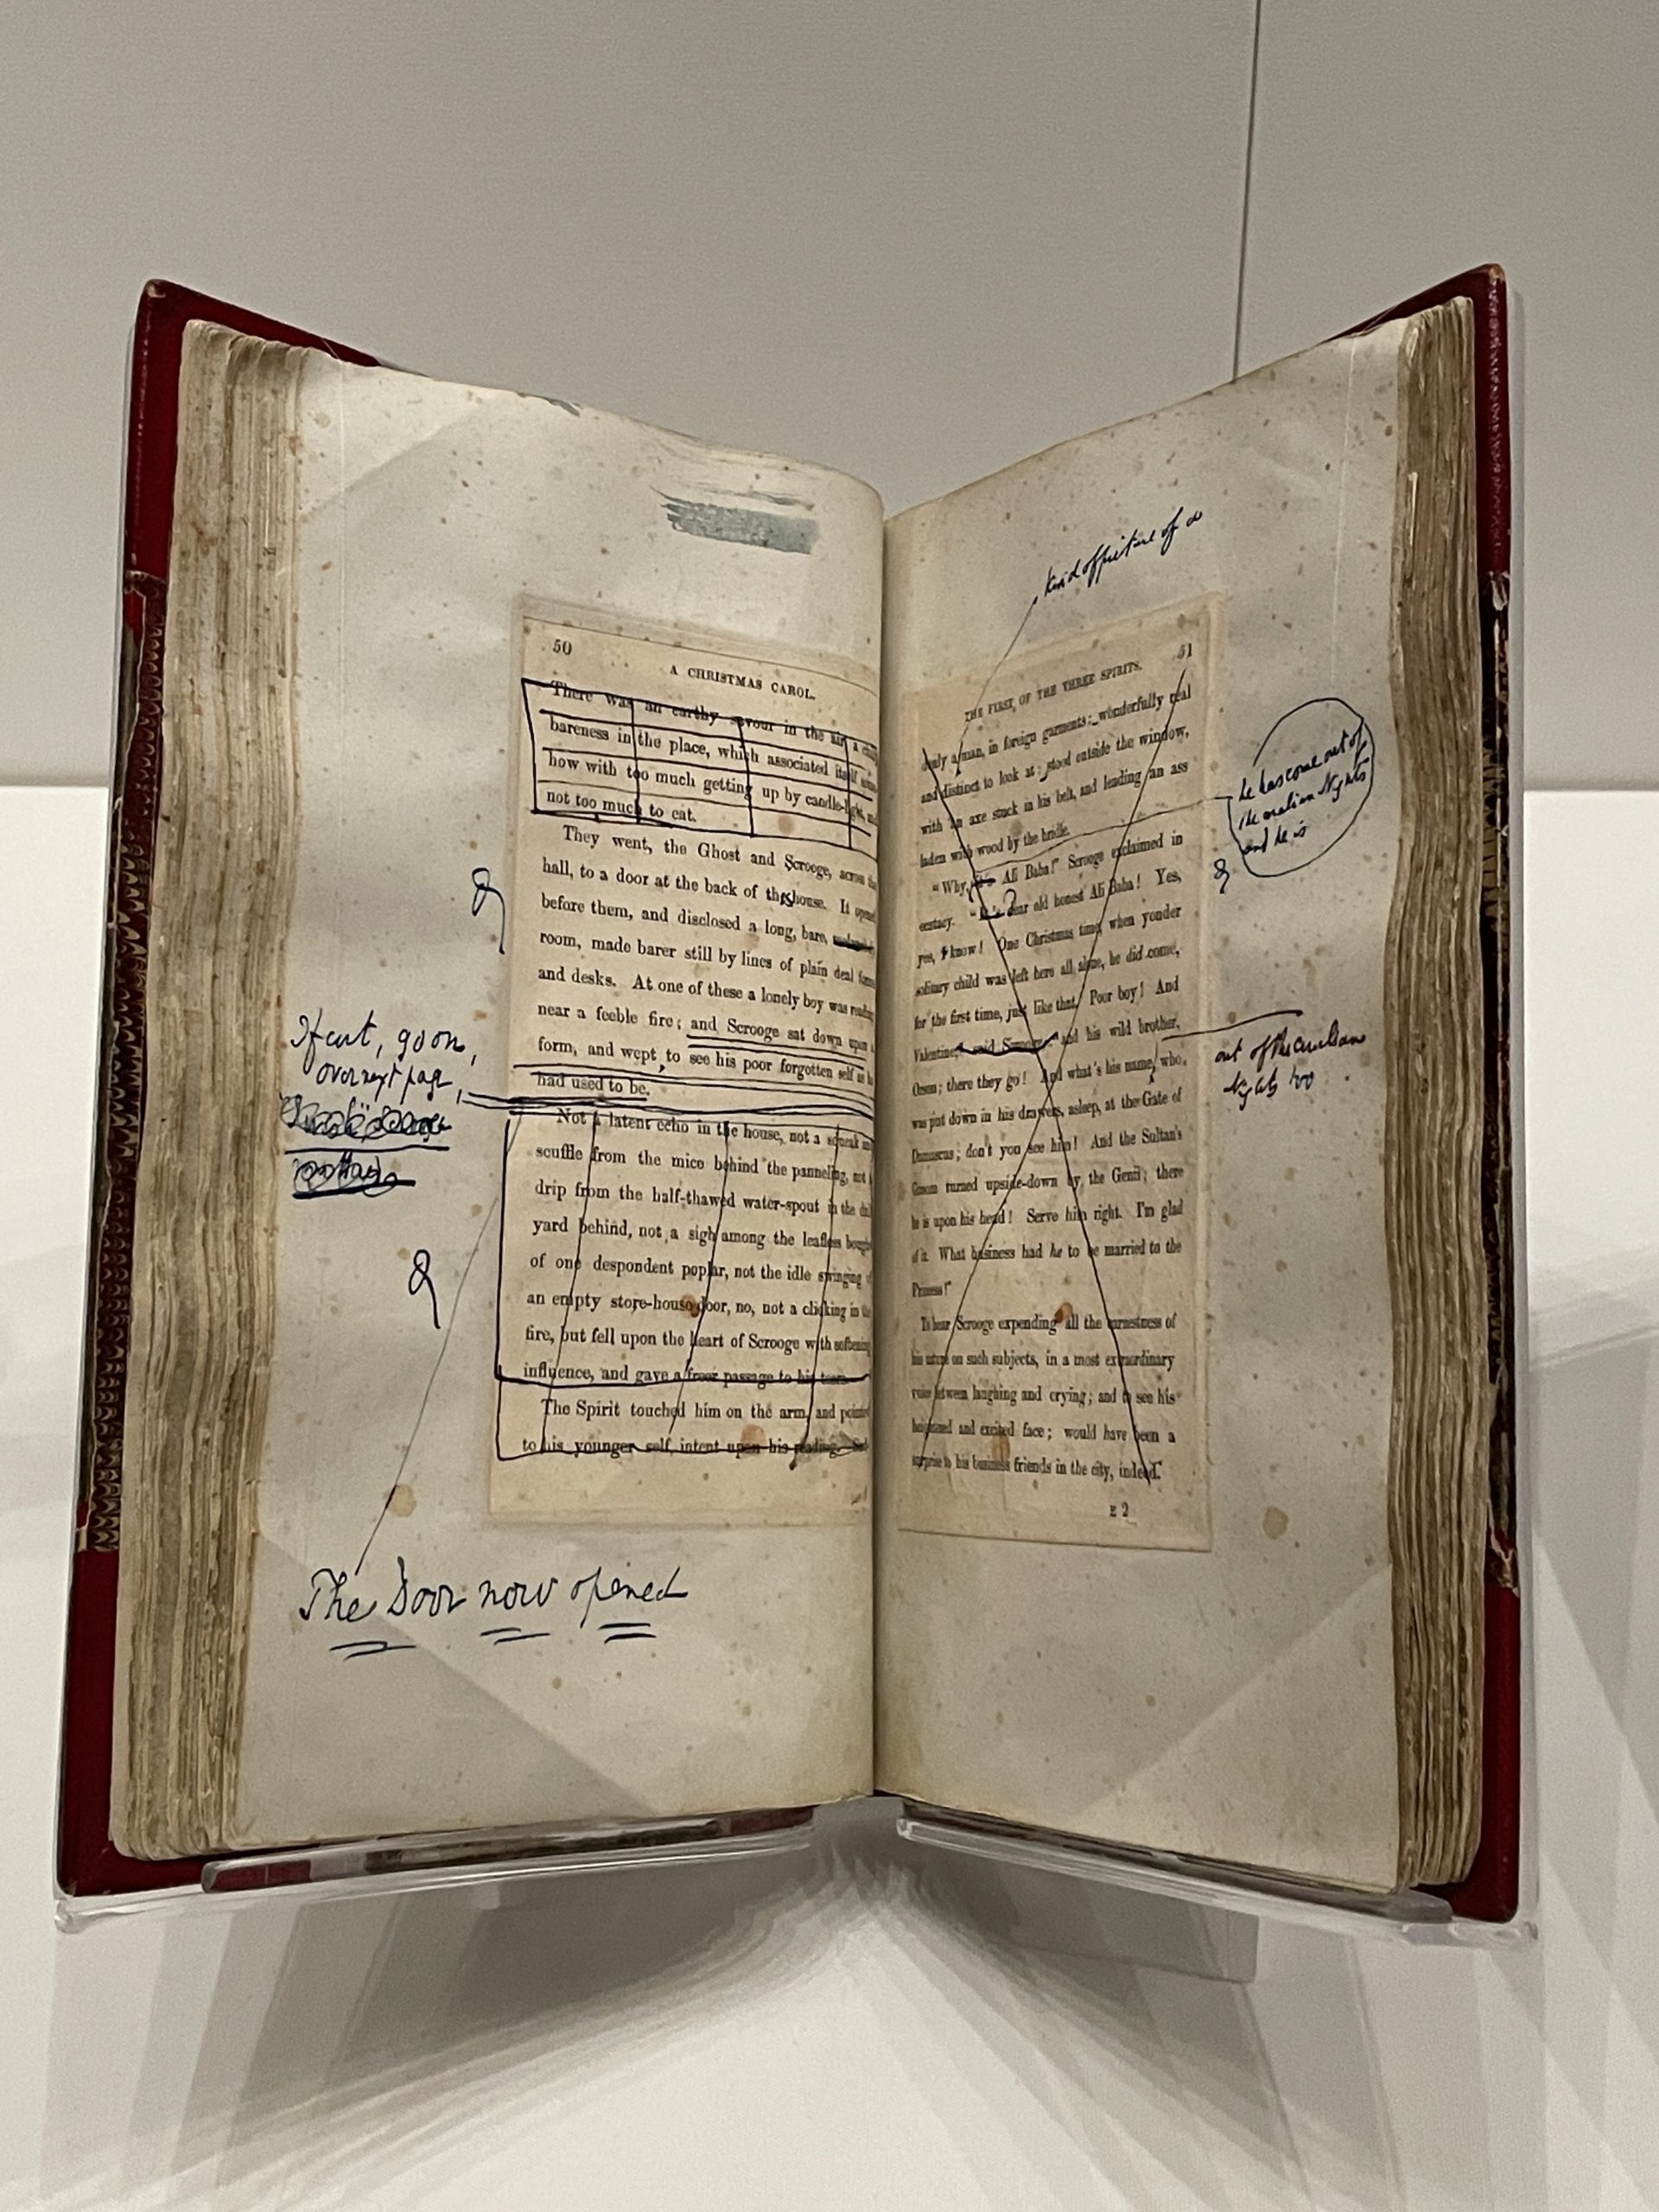 50
A CHRISTMAS CAROL.
There was an earthy savour in the air, a
bareness in the place, which associated itself
how with too much getting up by candle-light, and
not too much to eat.
They went, the Ghost and Scrooge, across the
hall, to a door at the back of the house. It opened
before them, and disclosed a long, bare,
room, made barer still by lines of plain deal forms
and desks. At one of these a lonely boy was reading
near a feeble fire; and Scrooge sat down upon a
form, and wept to see his poor forgotten self as he
had used to be.
Not a latent echo in the house, not a squeak and
scuffle from the mice behind the panneling, not a
drip from the half-thawed water-spout in the dull
yard behind, not a sigh among the leafless boughs
of one despondent poplar, not the idle swinging of
an empty store-house door, no, not a clicking in the
fire, but fell upon the heart of Scrooge with softening
influence, and gave a freer passage to his tears.
The Spirit touched him on the arm, and pointed
to his younger self, intent upon his reading.
If cut, go on,
over next page,
The Door now opened
kind of picture of a
THE FIRST OF THE THREE SPIRITS.
51
a man, in foreign garments: wonderfully real
and distinct to look at: stood outside the window,
with an axe stuck in his belt, and leading an ass
laden with wood by the bridle.
"Why, it's Ali Baba!" Scrooge exclaimed in
ecstacy. "It's dear old honest Ali Baba! Yes,
yes, I know! One Christmas time, when yonder
solitary child was left here all alone, he did come,
for the first time, just like that. Poor boy! And
Valentine," said Scrooge, "and his wild brother,
Orson; there they go! And what's his name, who
was put down in his drawers, asleep, at the Gate of
Damascus; don't you see him! And the Sultan's
Groom turned upside-down by the Genii; there
he is upon his head! Serve him right. I'm glad
of it. What business had he to be married to the
Princess!"
To hear Scrooge expending all the earnestness of
his nature on such subjects, in a most extraordinary
voice between laughing and crying; and to see his
heightened and excited face; would have been a
surprise to his business friends in the city, indeed.
E 2
he has come out of
the Arabian Nights
and he is
out of the Arabian
Nights too